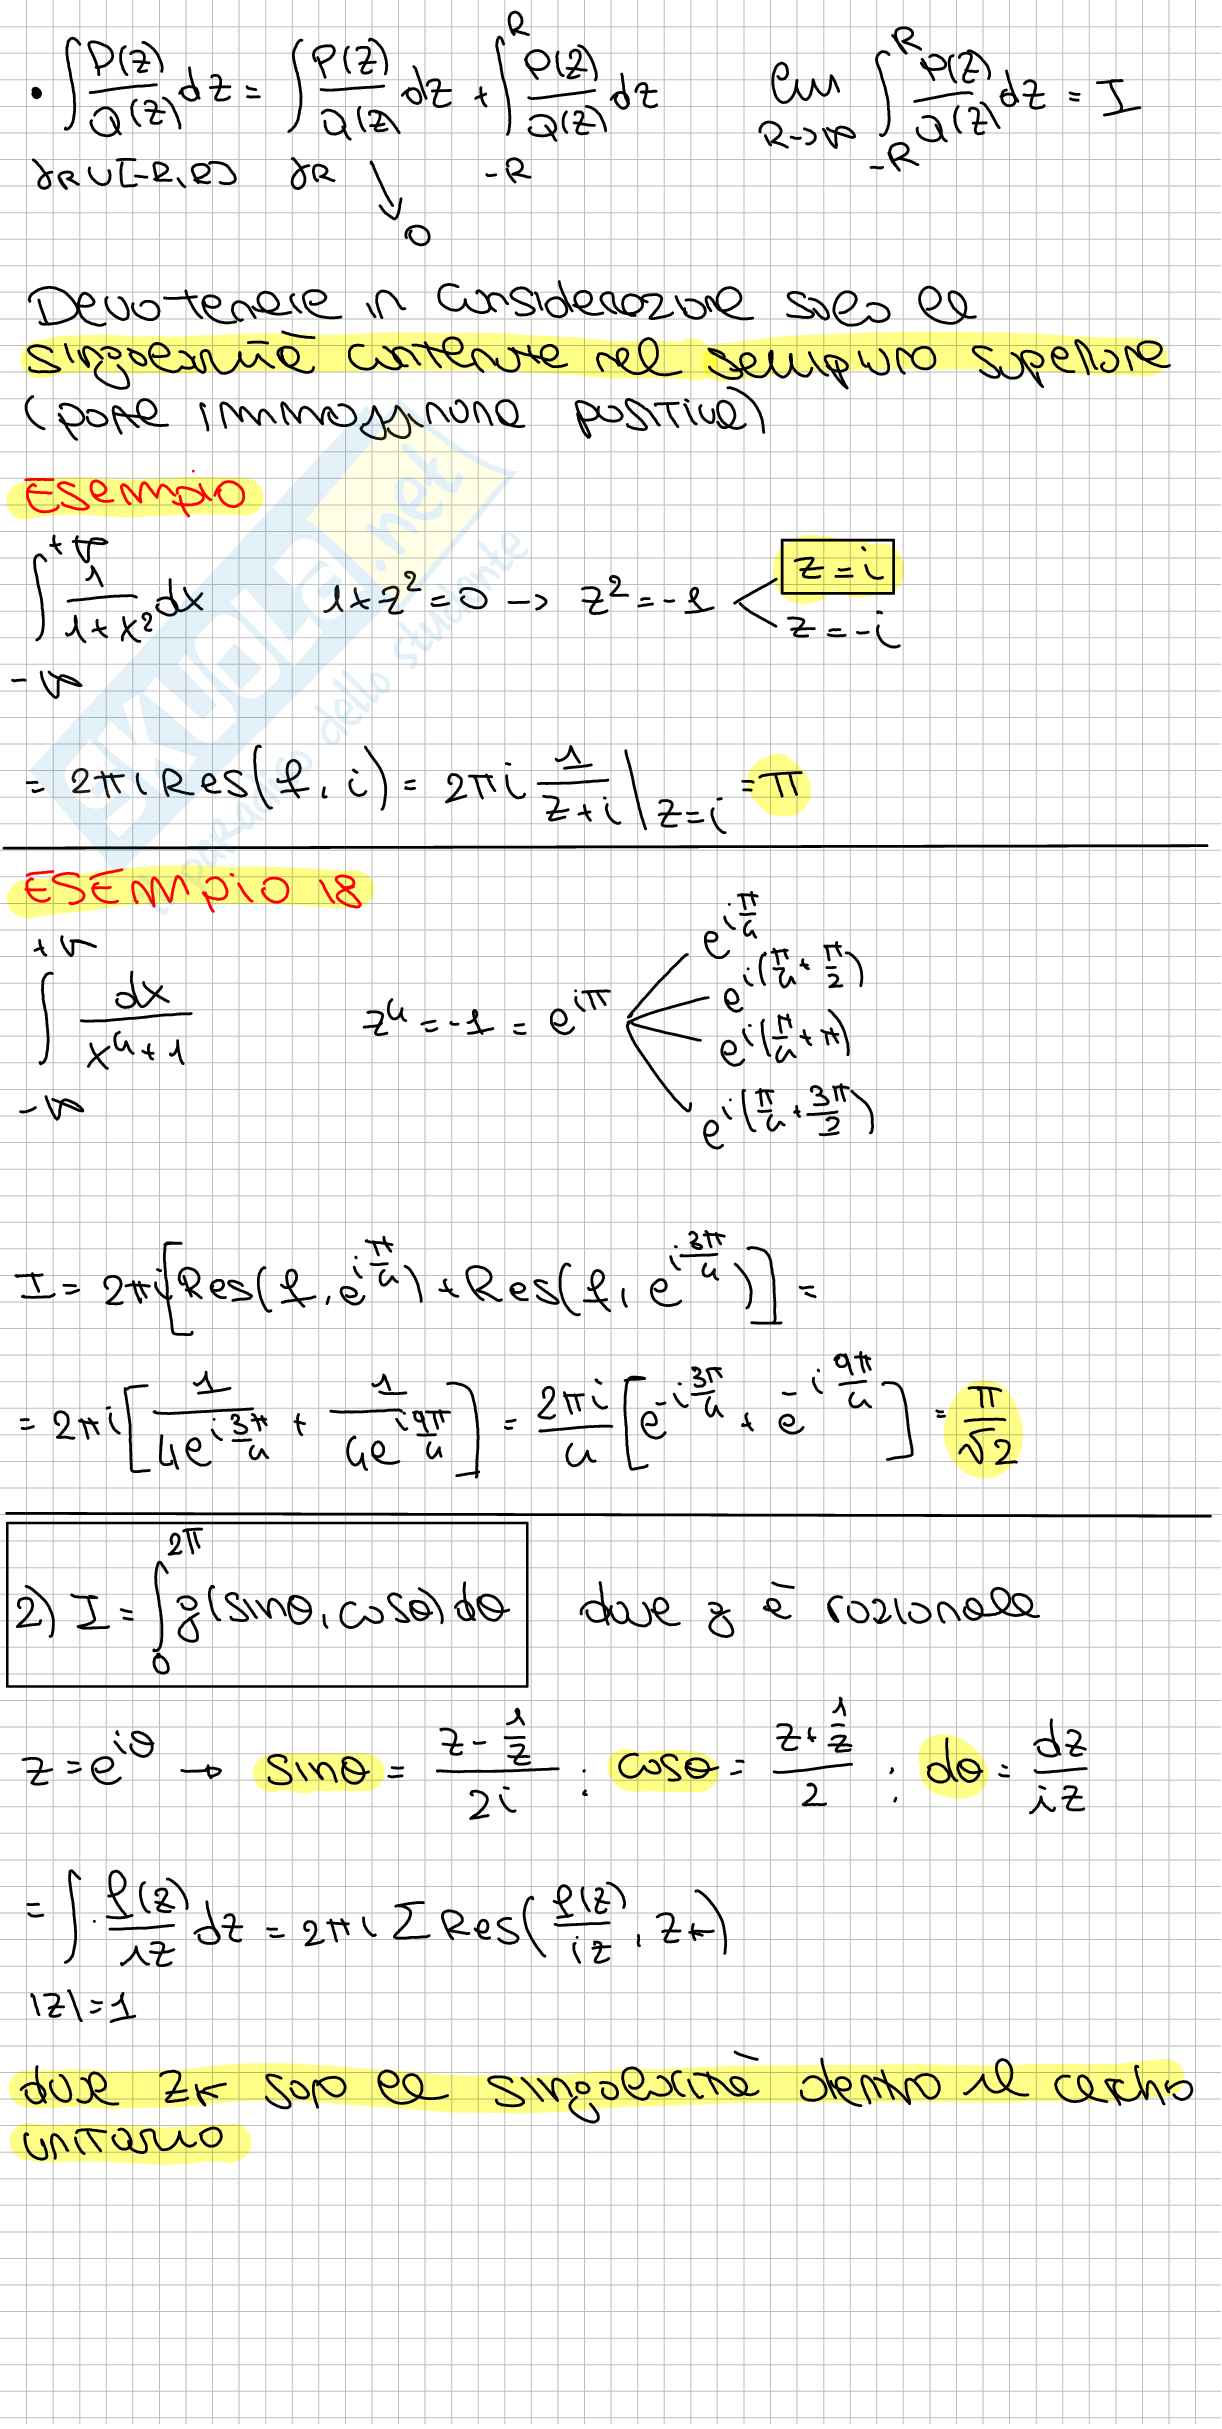 • ∫_{γR∪[-R,R]} P(z)/Q(z) dz = ∫_{γR} P(z)/Q(z) dz + ∫_{-R}^{R} P(z)/Q(z) dz    lim_{R→∞} ∫_{-R}^{R} P(z)/Q(z) dz = I
↘ 0
Devo tenere in considerazione solo le
singolarità contenute nel semipiano superiore
(parte immaginaria positiva)
Esempio
∫_{-∞}^{+∞} 1/(1+x²) dx    1+z²=0 → z²=-1 < z=i
z=-i
= 2πi Res(f, i) = 2πi 1/(z+i) |_{z=i} = π
ESEMPIO 18
∫_{-∞}^{+∞} dx/(x⁴+1)    z⁴=-1=e^{iπ}
e^{iπ/4}
e^{i(π/4+π/2)}
e^{i(π/4+π)}
e^{i(π/4+3π/2)}
I = 2πi[Res(f, e^{iπ/4}) + Res(f, e^{i3π/4})] =
= 2πi[1/(4e^{i3π/4}) + 1/(4e^{i9π/4})] = 2πi/4 [e^{-i3π/4} + e^{-i9π/4}] = π/√2
2) I = ∫_{0}^{2π} g(sinθ, cosθ)dθ    dove g è razionale
z=e^{iθ} → sinθ = (z-1/z)/2i ; cosθ = (z+1/z)/2 ; dθ = dz/iz
= ∫_{|z|=1} f(z)/iz dz = 2πi Σ Res(f(z)/iz, zk)
dove zk sono le singolarità dentro il cerchio
unitario
SKUOLA.net
paradiso dello studente